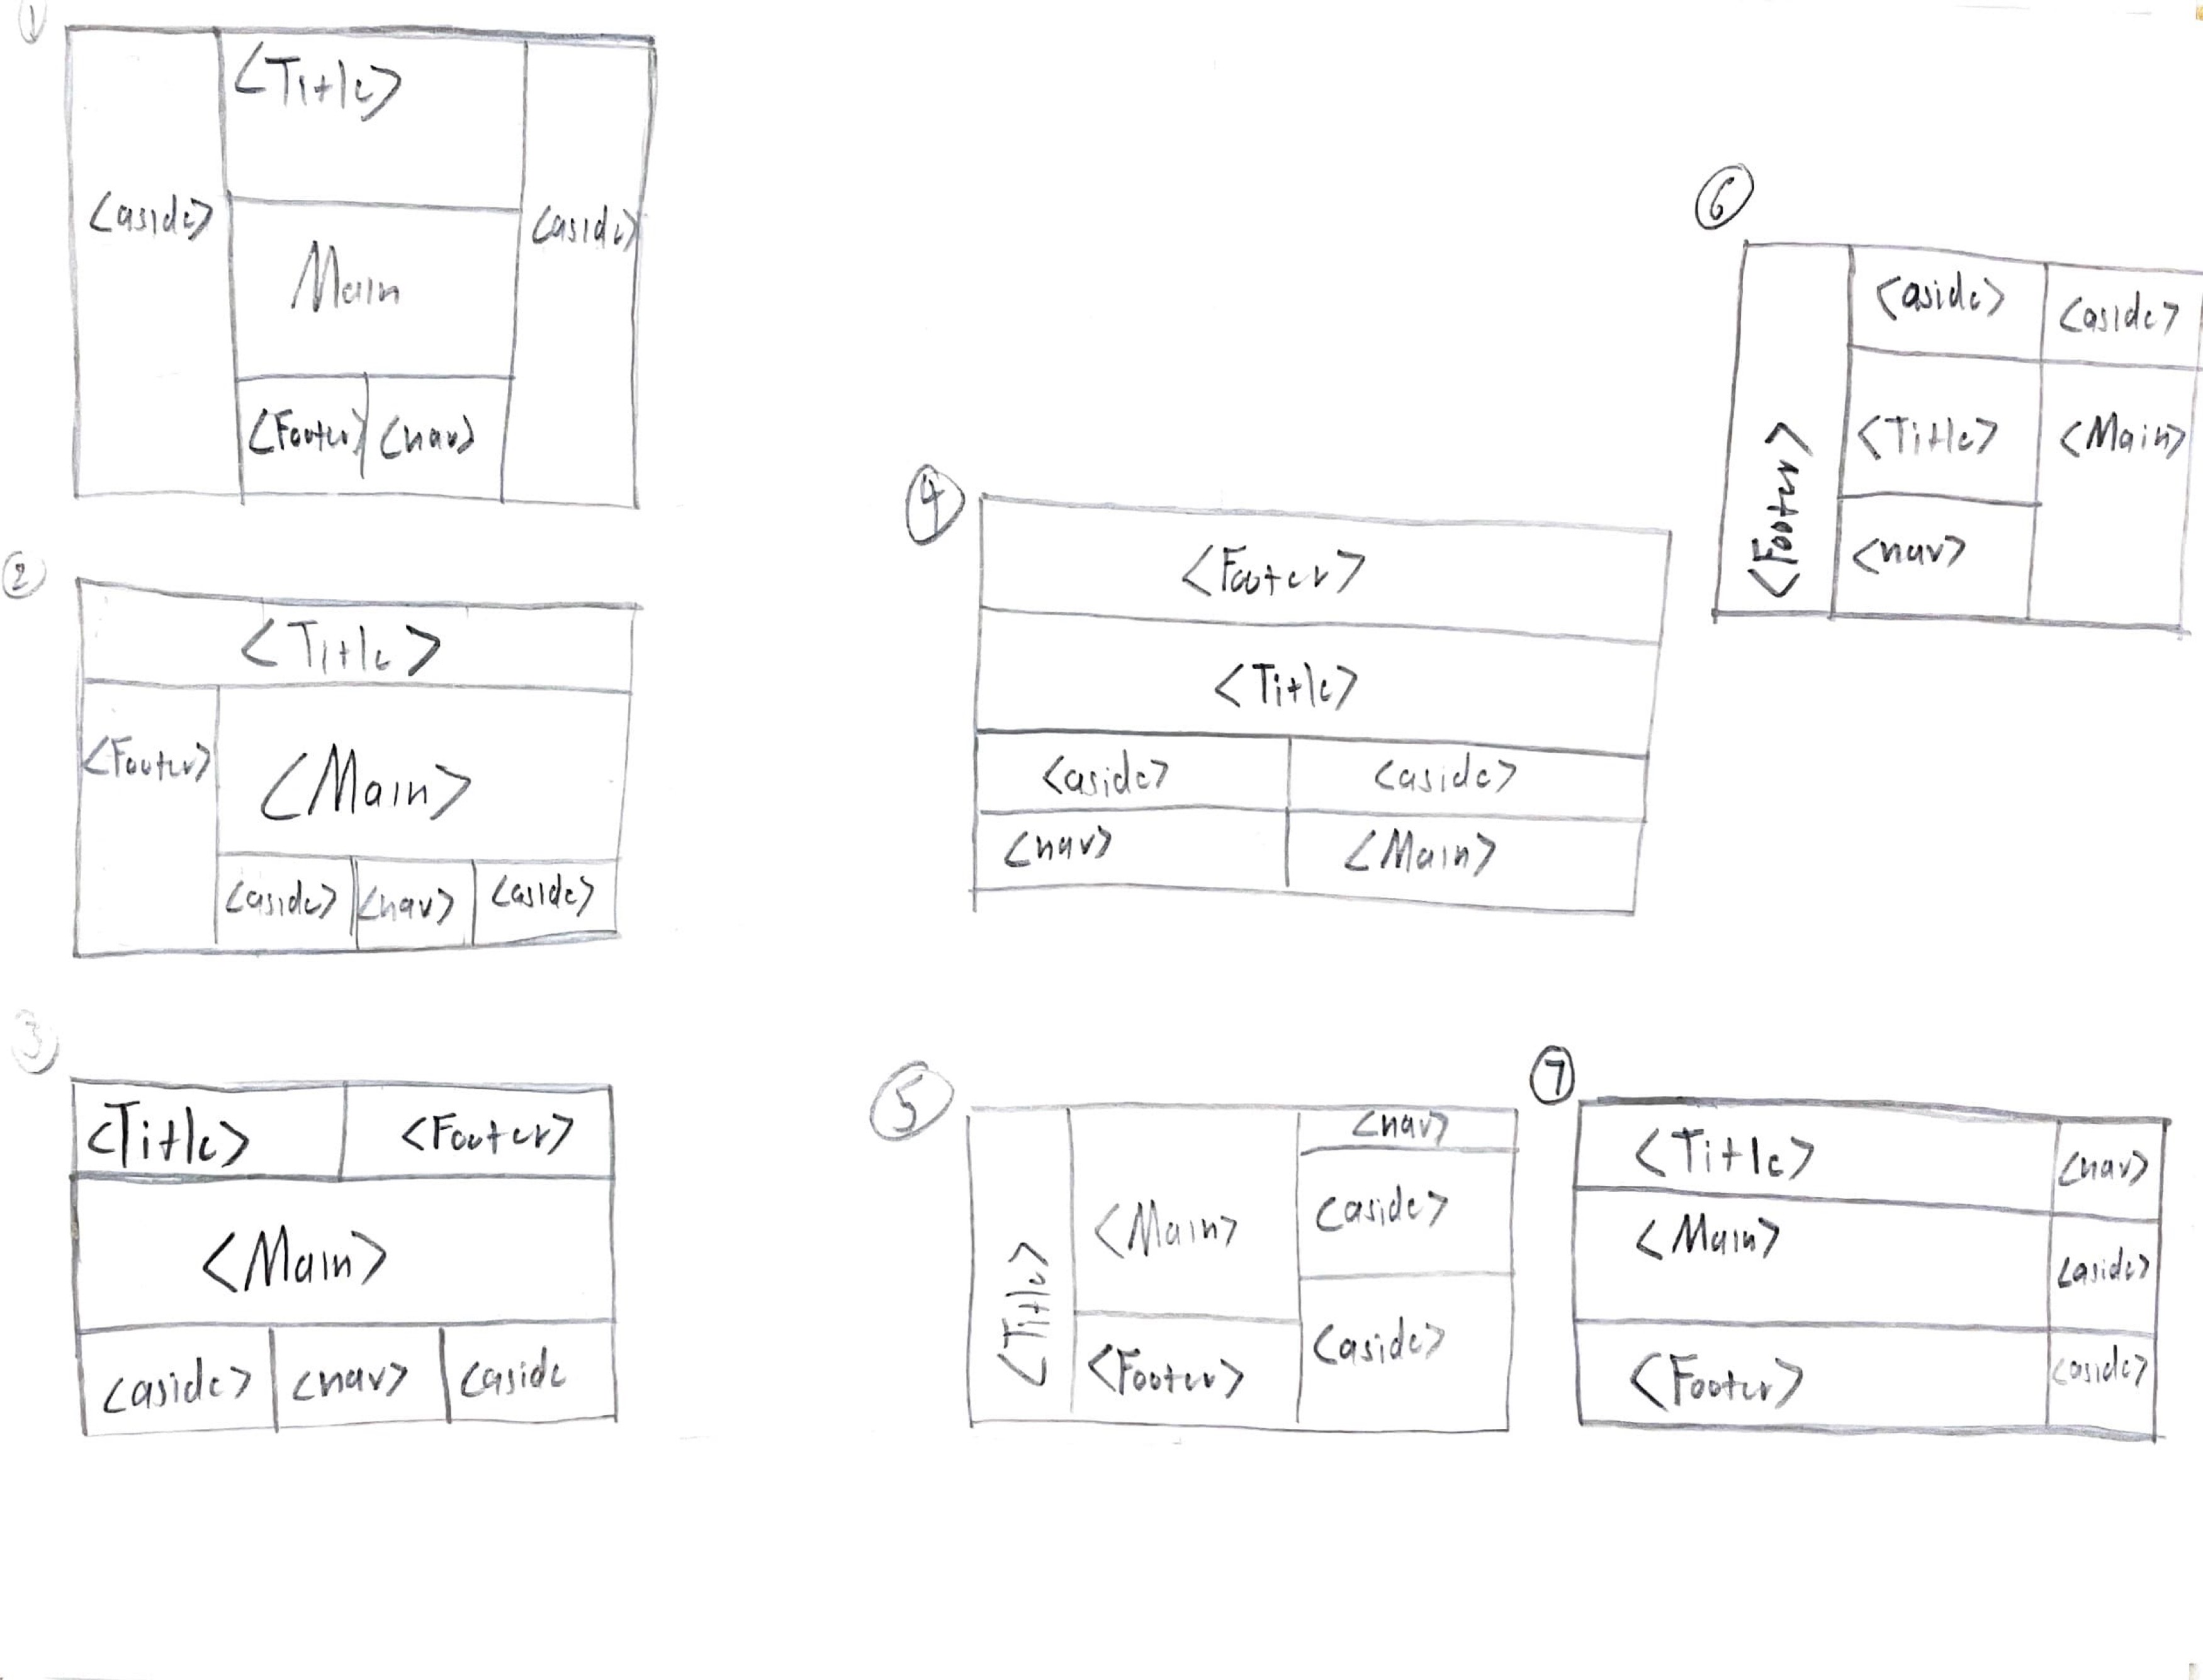 1
<Title>
<aside>
<aside>
Main
<Footer>
<nav>
2
<Title>
<Footer>
<Main>
<aside>
<nav>
<aside>
3
<Title>
<Footer>
<Main>
<aside>
<nav>
<aside
4
<Footer>
<Title>
<aside>
<aside>
<nav>
<Main>
5
<Title>
<Main>
<Footer>
<nav>
<aside>
<aside>
6
<Footer>
<aside>
<aside>
<Title>
<Main>
<nav>
7
<Title>
<nav>
<Main>
<aside>
<Footer>
<aside>